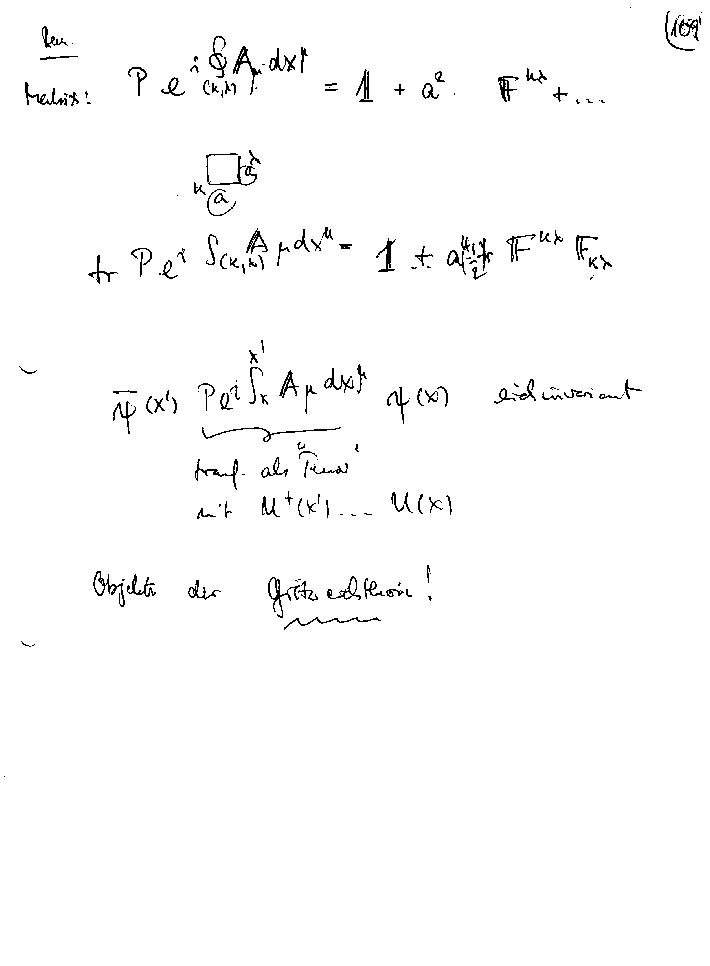 109'
Bem.
Matrix: P e^{i ∮_{(κ,λ)} 𝔸_μ dx^μ} = 𝟙 + a². 𝔽^{κλ} + ...
κ a a λ
tr P e^{i ∫_{(κ,λ)} 𝔸_μ dx^μ} = 𝟙 + a 𝔽^{κλ} 𝔽_{κλ}
ψ̄(x') P e^{i ∫_x^{x'} 𝔸_μ dx^μ} ψ(x) eichinvariant
transf. als "Tensor"
mit U⁺(x') ... U(x)
Objekte der Gittereichtheorie!